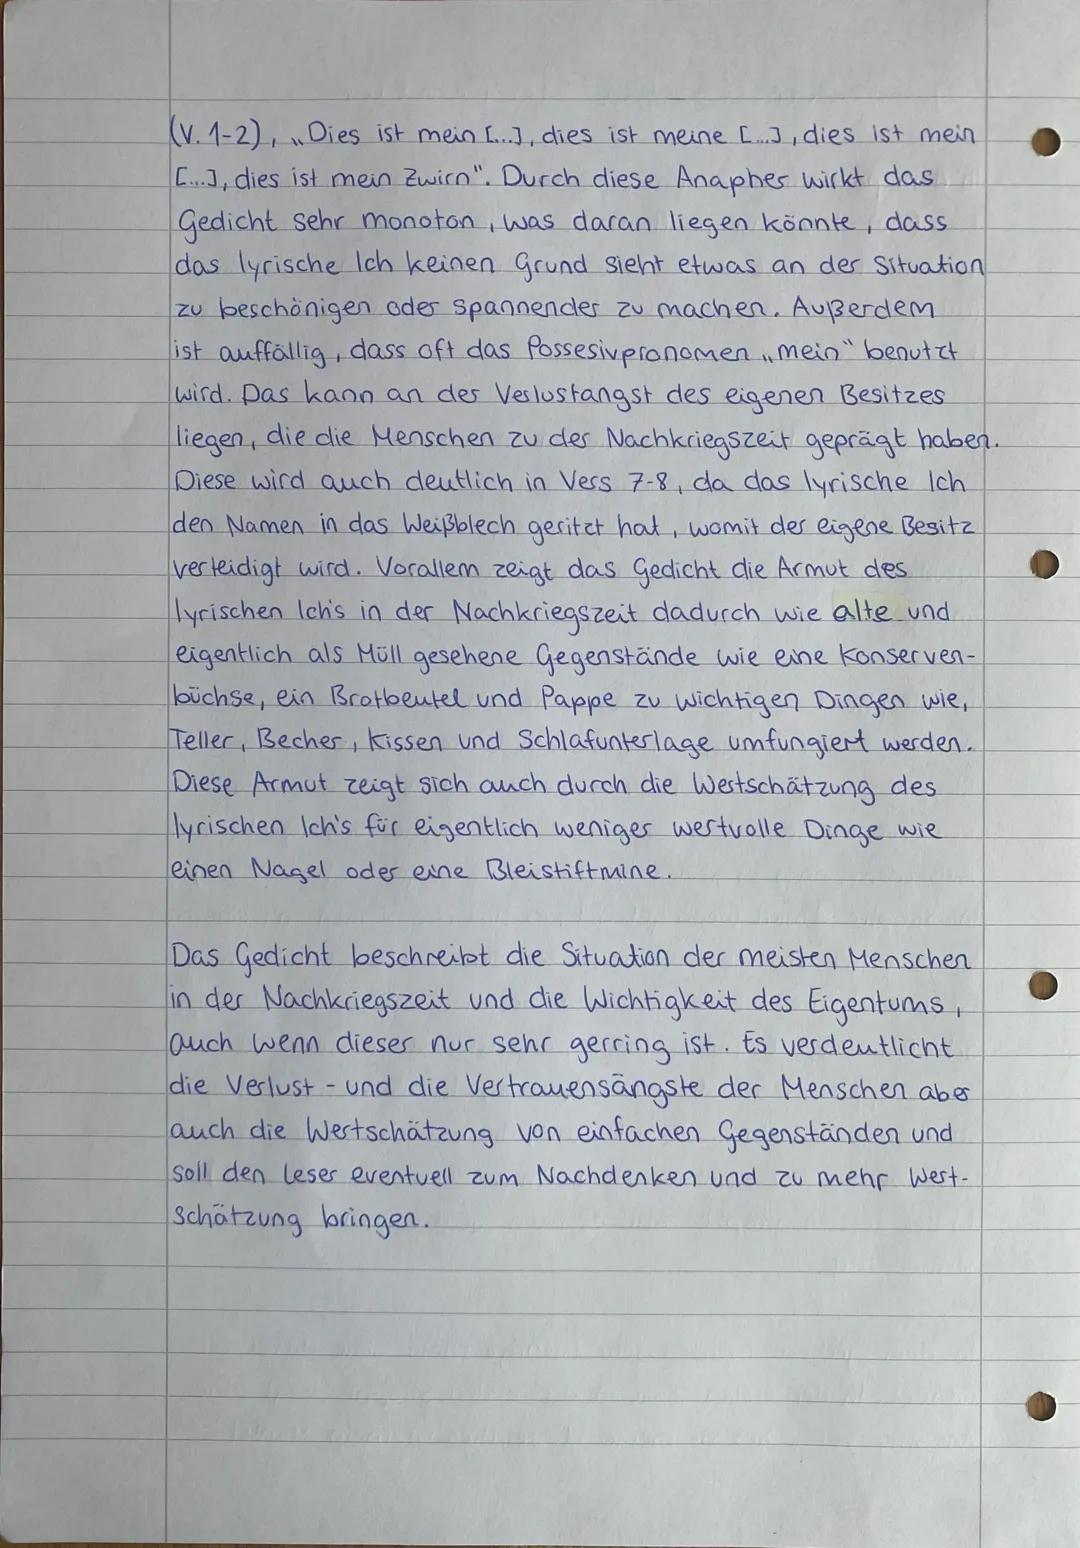 (V. 1-2), „Dies ist mein [...], dies ist meine [...], dies ist mein
[...], dies ist mein Zwirn". Durch diese Anapher wirkt das
Gedicht sehr monoton, was daran liegen könnte, dass
das lyrische Ich keinen Grund sieht etwas an der Situation
zu beschönigen oder spannender zu machen. Außerdem
ist auffällig, dass oft das Possesivpronomen „mein" benutzt
wird. Das kann an der Verlustangst des eigenen Besitzes
liegen, die die Menschen zu der Nachkriegszeit geprägt haben.
Diese wird auch deutlich in Vers 7-8, da das lyrische Ich
den Namen in das Weißblech geritzt hat, womit der eigene Besitz
verteidigt wird. Vorallem zeigt das Gedicht die Armut des
lyrischen Ich's in der Nachkriegszeit dadurch wie alte und
eigentlich als Müll gesehene Gegenstände wie eine Konserven-
büchse, ein Brotbeutel und Pappe zu wichtigen Dingen wie,
Teller, Becher, Kissen und Schlafunterlage umfungiert werden.
Diese Armut zeigt sich auch durch die Wertschätzung des
lyrischen Ich's für eigentlich weniger wertvolle Dinge wie
einen Nagel oder eine Bleistiftmine.
Das Gedicht beschreibt die Situation der meisten Menschen
in der Nachkriegszeit und die Wichtigkeit des Eigentums,
auch wenn dieser nur sehr gerring ist. Es verdeutlicht
die Verlust - und die Vertrauensängste der Menschen aber
auch die Wertschätzung von einfachen Gegenständen und
soll den Leser eventuell zum Nachdenken und zu mehr Wert-
schätzung bringen.